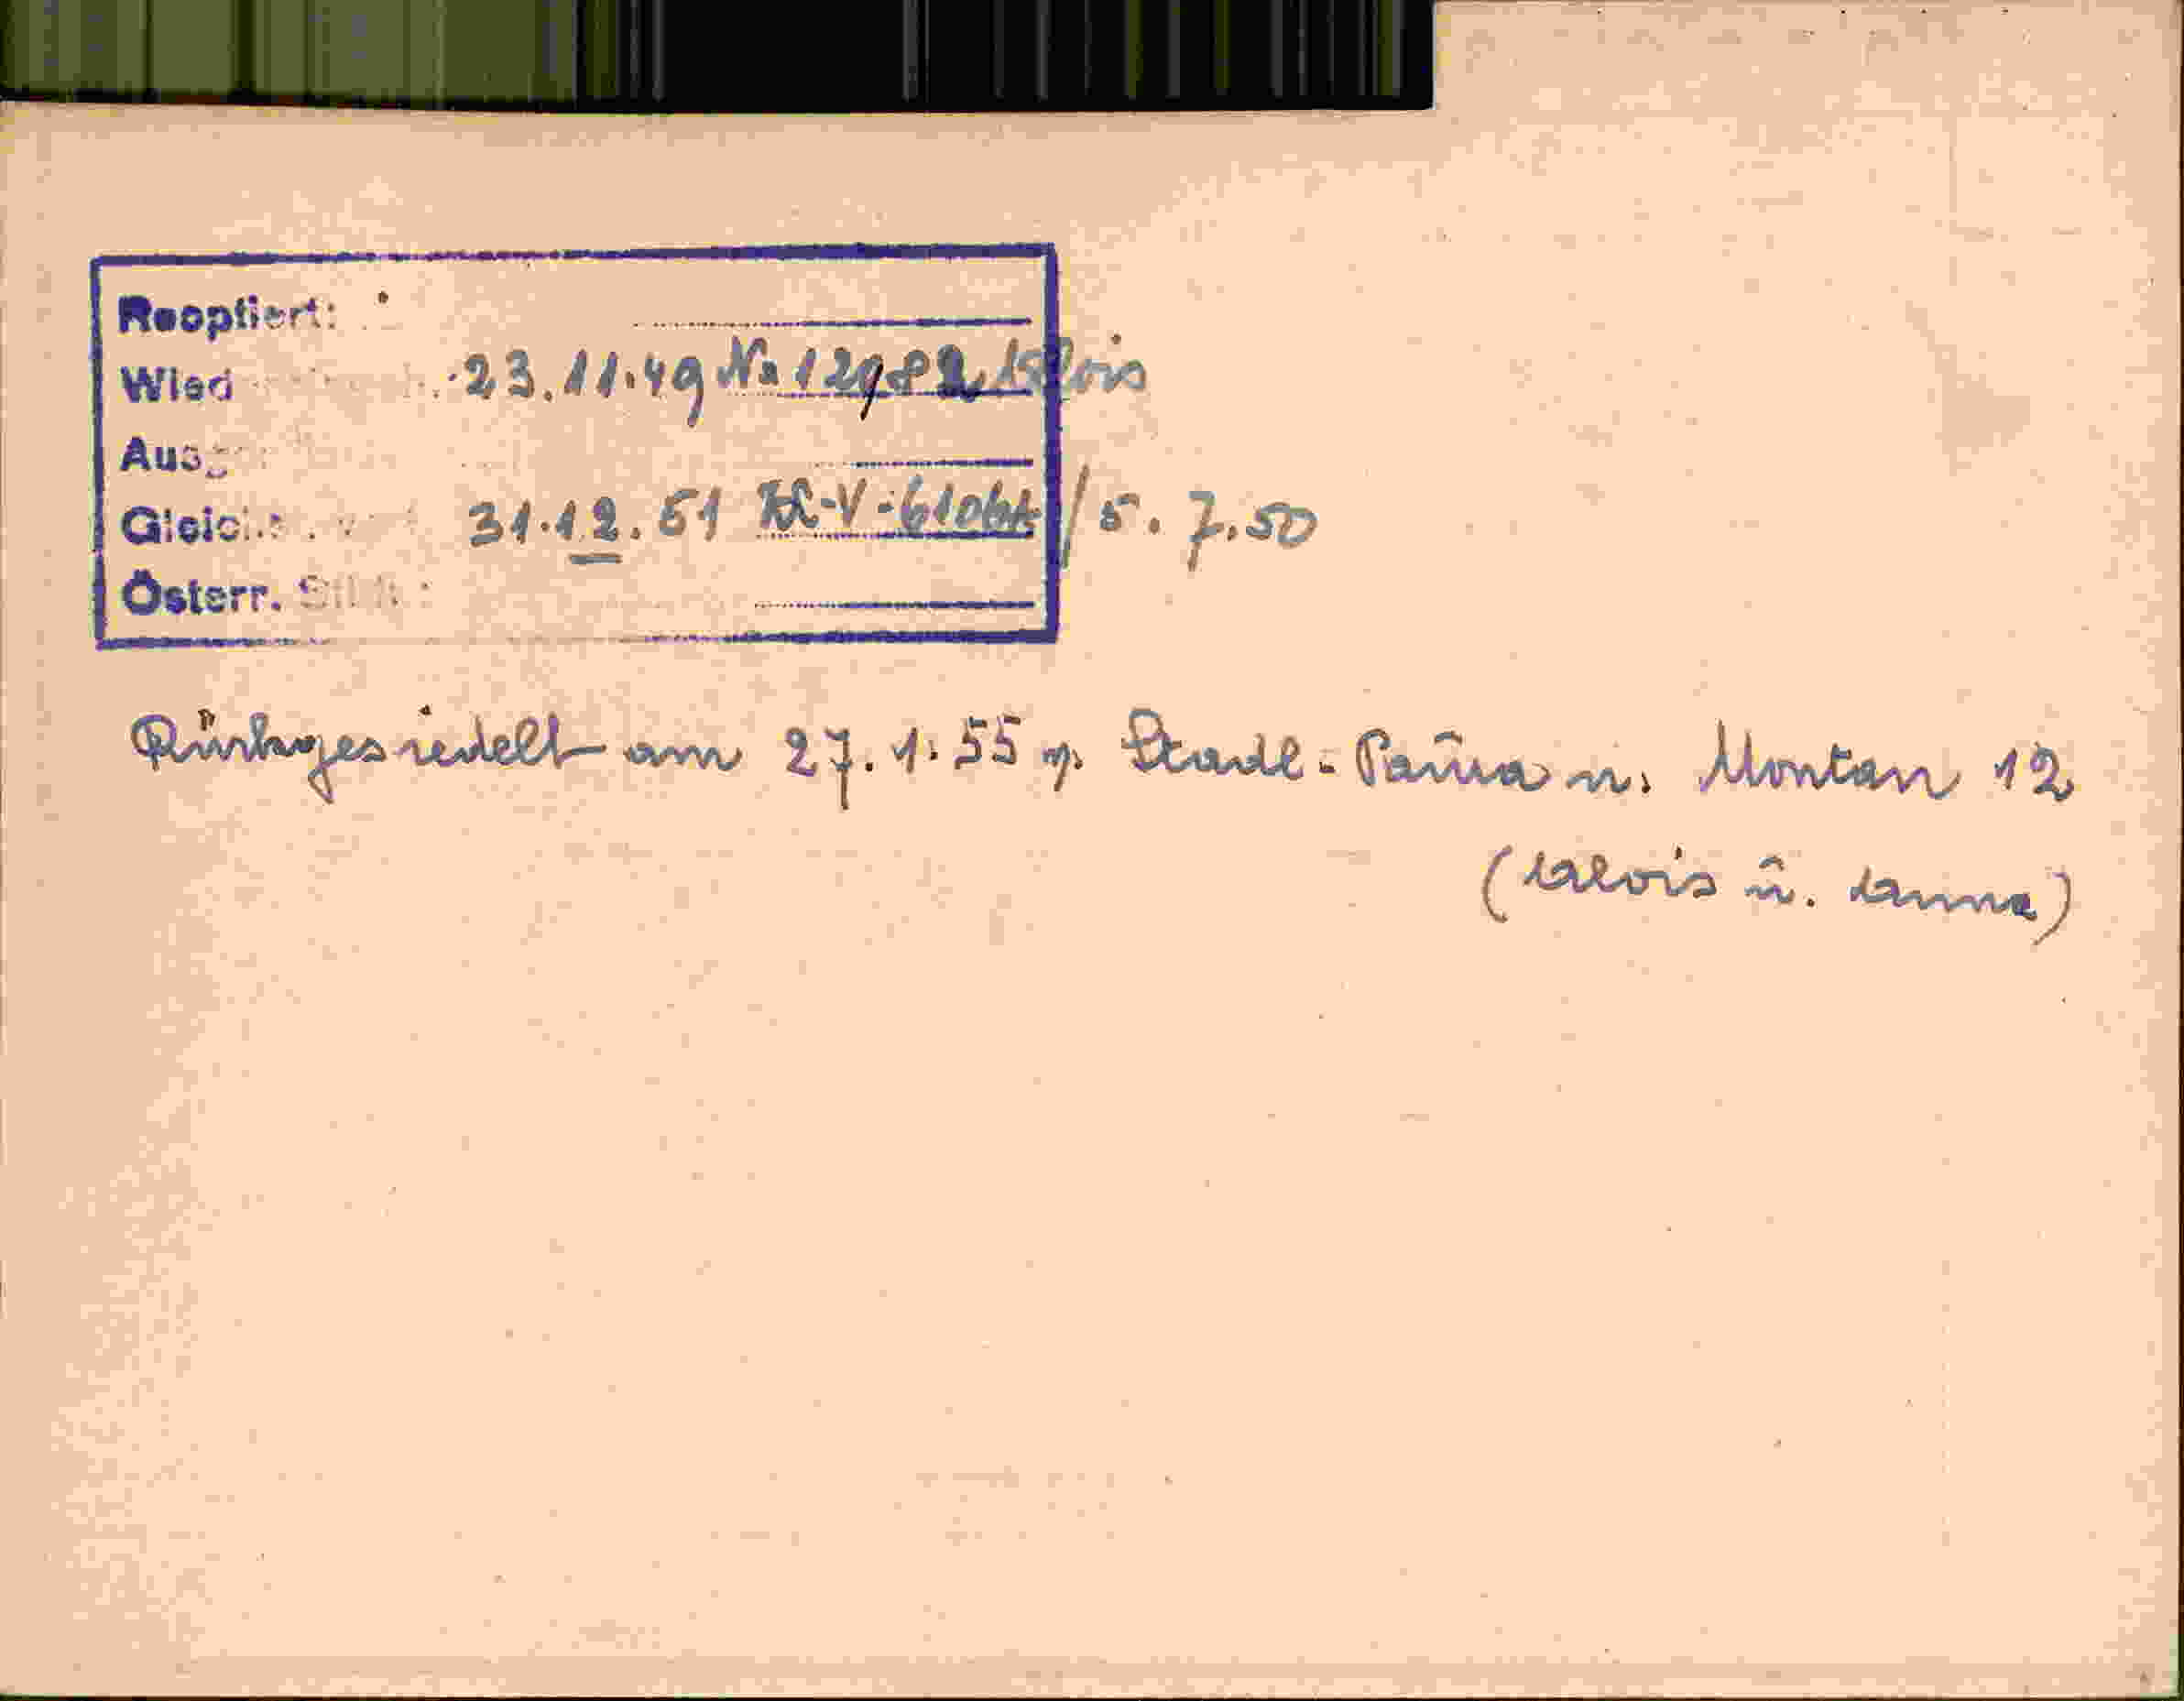 Reoptiert:
Wied 23.11.49 No 12982 Alois
Ausg
Gleich 31.12.51 / 5.7.50
Österr. Stb.:
Rückgesiedelt am 27.1.55 v. Stadl-Paura n. Montan 12
(Alois u. Anna)